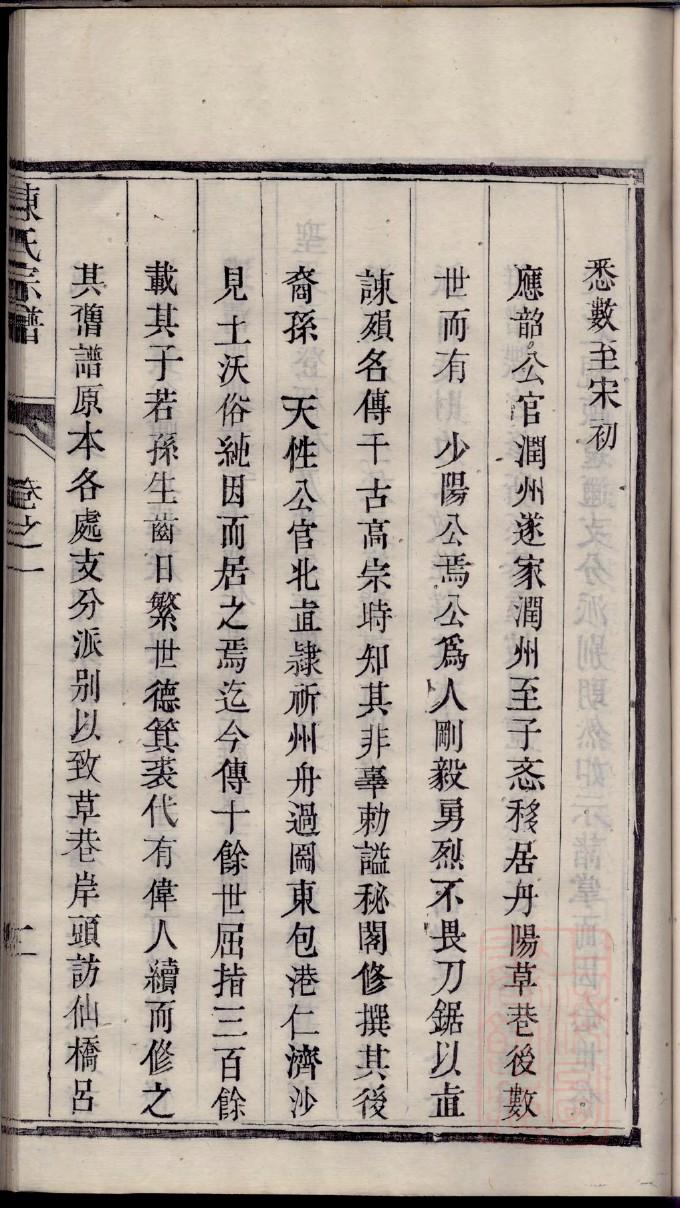 悉數至宋初
應韶公官潤州遂家潤州至子忞移居丹陽草巷後數
世而有　少陽公焉公爲人剛毅勇烈不畏刀鋸以直
諫殞名傳千古高宗時知其非辜勅謚秘閣修撰其後
裔孫　天性公官北直隸祈州舟過圌東包港仁濟沙
見土沃俗純因而居之焉迄今傳十餘世屈指三百餘
載其子若孫生齒日繁世德箕裘代有偉人續而修之
其舊譜原本各處支分派别以致草巷岸頭訪仙橋呂
陳氏宗譜　卷之一　二